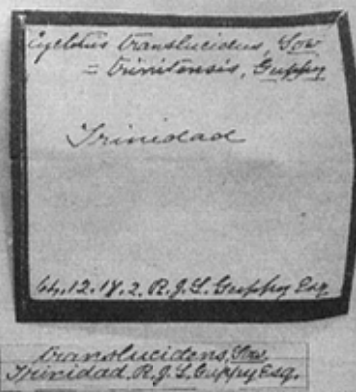 Cyclotus translucidus, Sow
= trinitensis, Guppy
Trinidad
64.12.18.2. R.J.L. Guppy Esq.
translucidens, Sow.
Trinidad. R.J.L. Guppy Esq.